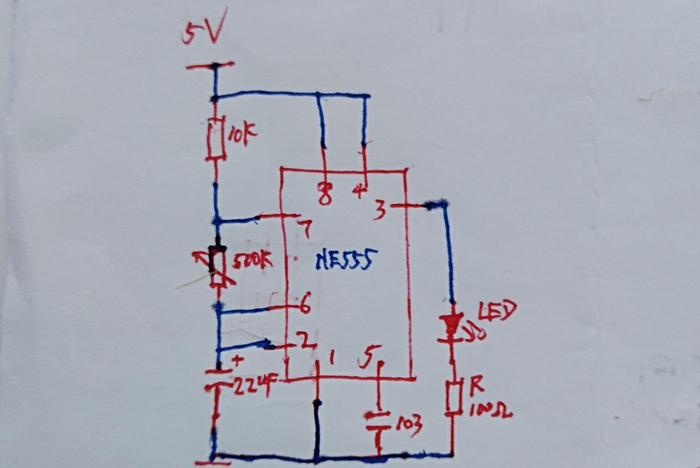 5V
10K
8
4
3
7
500K
NE555
6
2
LED
1
5
+
22uF
R
100Ω
103